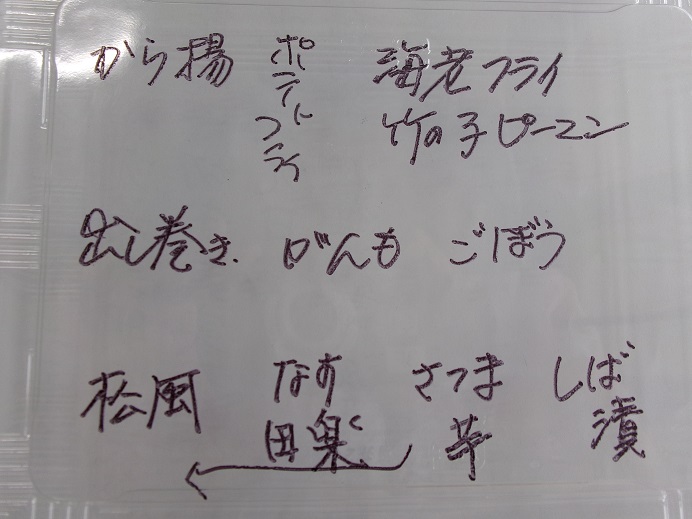 から揚 ポテトフライ 海老フライ
竹の子ピーマン
出し巻き がんも ごぼう
松風 なす田楽 さつま芋 しば漬